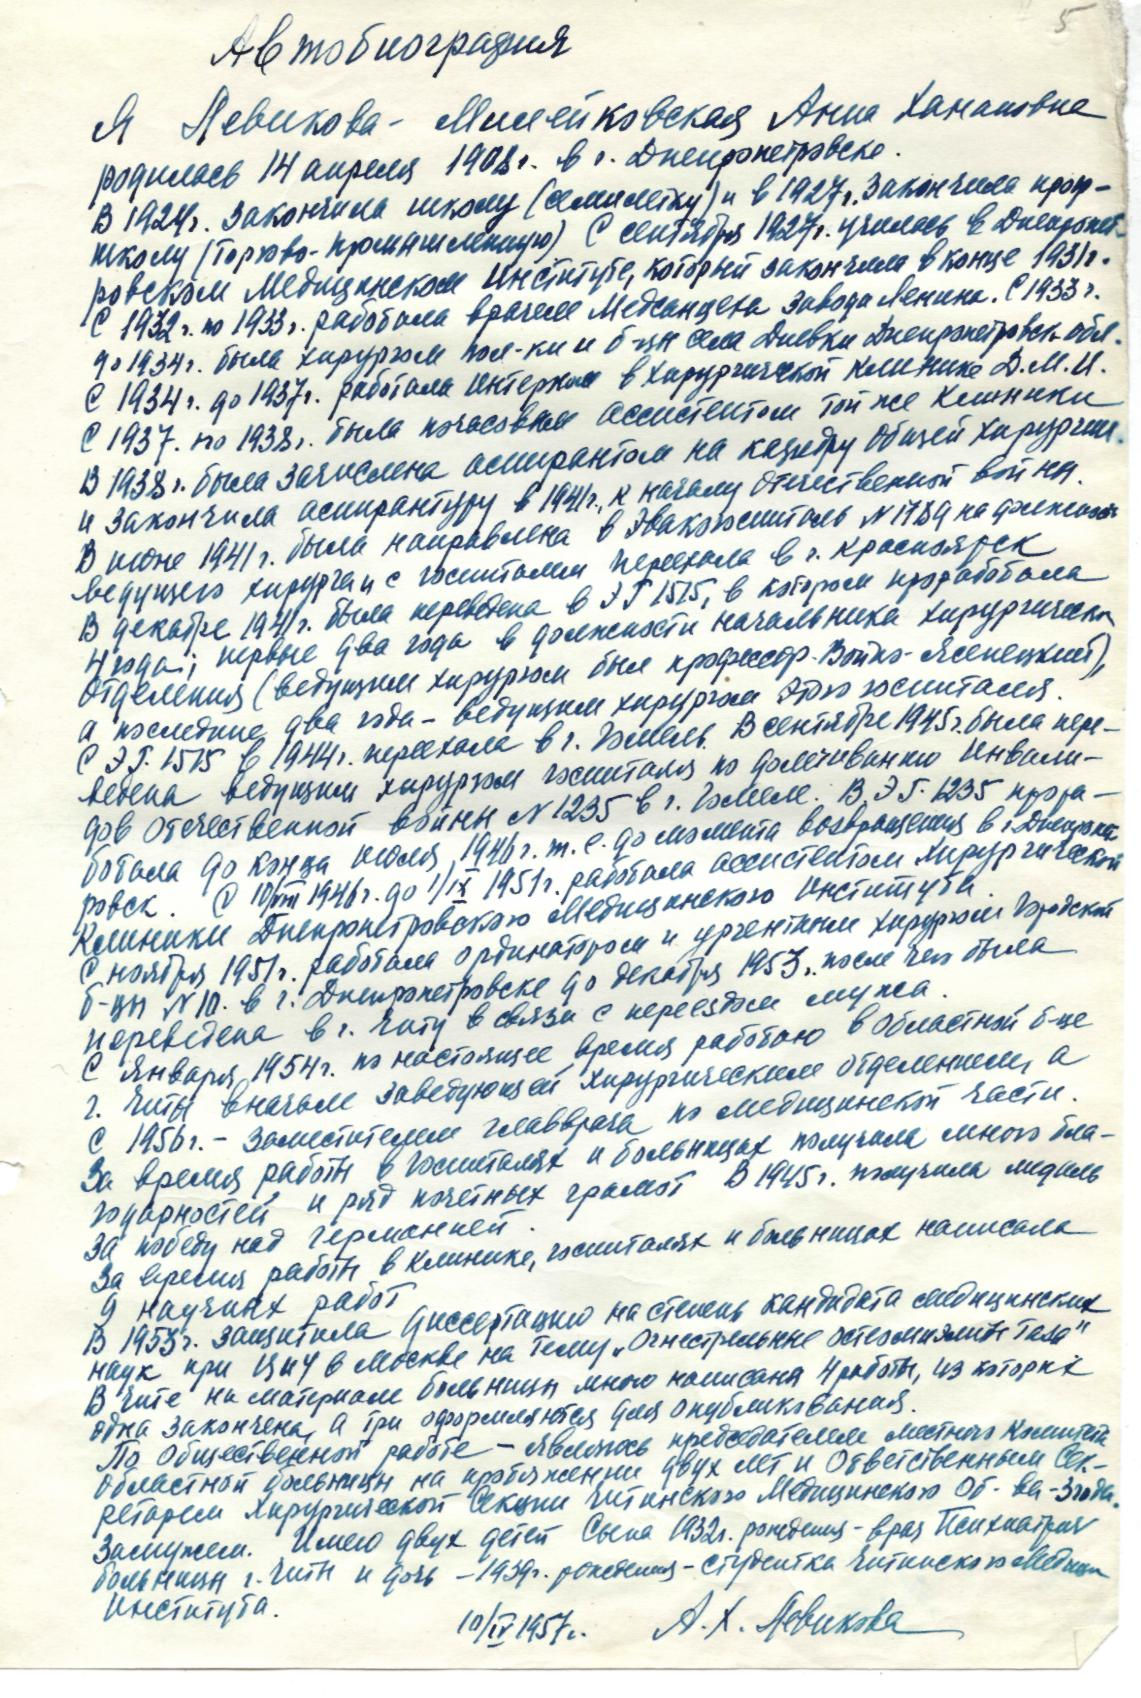 5
Автобиография
Я Левикова - Милейковская Анна Ханановна
родилась 14 апреля 1908 г. в г. Днепропетровске.
В 1924г. закончила школу (семилетку) и в 1927г. закончила проф-
школу (Торгово-промышленную) С сентября 1927г. училась в Днепропет-
ровском Медицинском Институте, который закончила в конце 1931г.
С 1932г. по 1933г. работала врачем Медсанцеха завода Ленина. С 1933г.
до 1934г. была хирургом пол-ки и б-цы села Диевки Днепропетровск. обл.
С 1934г. до 1937г. работала интерном в хирургической клинике Д.М.И.
С 1937. по 1938г. была почасовым ассистентом той же клиники
В 1938г. была зачислена аспирантом на кафедру Общей хирургии.
и закончила аспирантуру в 1941г., к началу Отечественной войны.
В июне 1941г. была направлена в Эвакогоспиталь N 1789 на должность
ведущего хирурга и с госпиталем переехала в г. Красноярск
В декабре 1941г. была переведена в ЭГ 1515, в котором проработала
4 года; первые два года в должности начальника хирургическ.
Отделения (ведущим хирургом был профессор Войно-Ясенецкий),
а последние два года - ведущим хирургом этого госпиталя.
С ЭГ. 1515 в 1944г. переехала в г. Гомель. В сентябре 1945г. была пере-
ведена ведущим хирургом госпиталя по долечиванию Инвали-
дов Отечественной войны N 1235 в г. Гомеле. В ЭГ. 1235 прора-
ботала до конца июля 1946г. т.е. до момента возвращения в г. Днепропет-
ровск. С 10/VIII 1946г. до 1/IX 1951г. работала ассистентом хирургической
Клиники Днепропетровского Медицинского Института.
С ноября 1951г. работала ординатором и ургентным хирургом Городской
б-цы N 10. в г. Днепропетровске до декабря 1953г. после чего была
переведена в г. Читу в связи с переездом мужа.
С Января 1954г. по настоящее время работаю в Областной б-це
г. Читы вначале заведующей хирургическим отделением, а
с 1956г. - заместителем главврача по медицинской части.
За время работы в госпиталях и больницах получила много бла-
годарностей и ряд почетных грамот В 1945г. получила медаль
За победу над германией.
За время работы в клинике, госпиталях и больницах написала
9 научных работ
В 1953г. защитила диссертацию на степень кандидата медицинских
наук при ЦИУ в Москве на тему „Огнестрельные остеомиэлиты таза"
В Чите на материале больницы мною написаны 4 работы, из которых
одна закончена, а три оформляются для опубликования.
По Общественной работе - являюсь председателем местного Комитета
Областной больницы на протяжении двух лет и Ответственным Сек-
ретарем Хирургической Секции Читинского Медицинского Об-ва - 3 года.
Замужем. Имею двух детей Сына 1932г. рождения - врач Психиатрич
больницы г. Читы и дочь - 1939г. рождения - студентка Читинского Медицин
Института.
10/IV 1957г. А.Х. Левикова